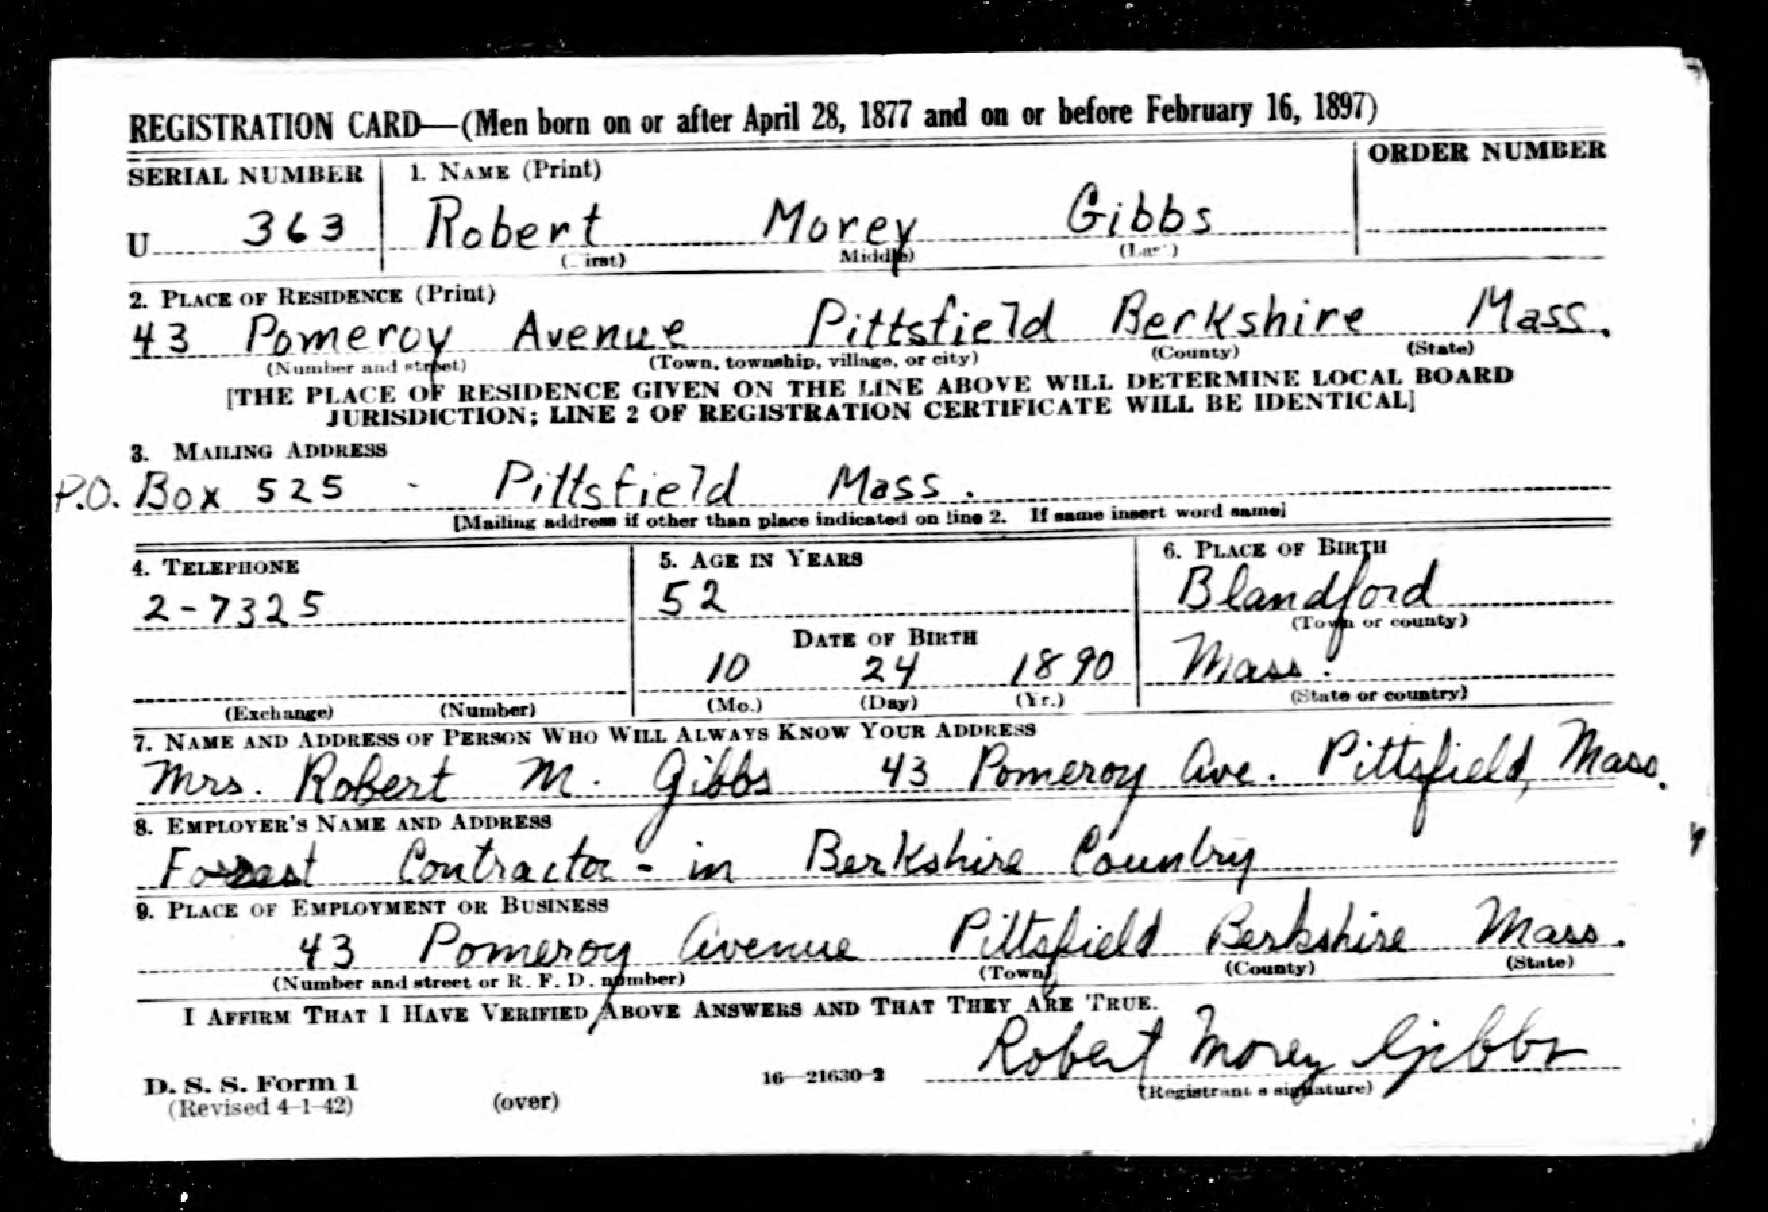 REGISTRATION CARD—(Men born on or after April 28, 1877 and on or before February 16, 1897)
SERIAL NUMBER 1. NAME (Print) ORDER NUMBER
U 363 Robert Morey Gibbs
(First) (Middle) (Last)
2. PLACE OF RESIDENCE (Print)
43 Pomeroy Avenue Pittsfield Berkshire Mass.
(Number and street) (Town, township, village, or city) (County) (State)
[THE PLACE OF RESIDENCE GIVEN ON THE LINE ABOVE WILL DETERMINE LOCAL BOARD
JURISDICTION; LINE 2 OF REGISTRATION CERTIFICATE WILL BE IDENTICAL]
3. MAILING ADDRESS
P.O. Box 525 - Pittsfield Mass.
[Mailing address if other than place indicated on line 2. If same insert word same]
4. TELEPHONE 5. AGE IN YEARS 6. PLACE OF BIRTH
2-7325 52 Blandford
DATE OF BIRTH (Town or county)
10 24 1890 Mass.
(Exchange) (Number) (Mo.) (Day) (Yr.) (State or country)
7. NAME AND ADDRESS OF PERSON WHO WILL ALWAYS KNOW YOUR ADDRESS
Mrs. Robert M. Gibbs 43 Pomeroy Ave. Pittsfield, Mass.
8. EMPLOYER'S NAME AND ADDRESS
Forest Contractor - in Berkshire Country
9. PLACE OF EMPLOYMENT OR BUSINESS
43 Pomeroy Avenue Pittsfield Berkshire Mass.
(Number and street or R. F. D. number) (Town) (County) (State)
I AFFIRM THAT I HAVE VERIFIED ABOVE ANSWERS AND THAT THEY ARE TRUE.
Robert Morey Gibbs
D. S. S. Form 1 16—21630-2 (Registrant's signature)
(Revised 4-1-42) (over)